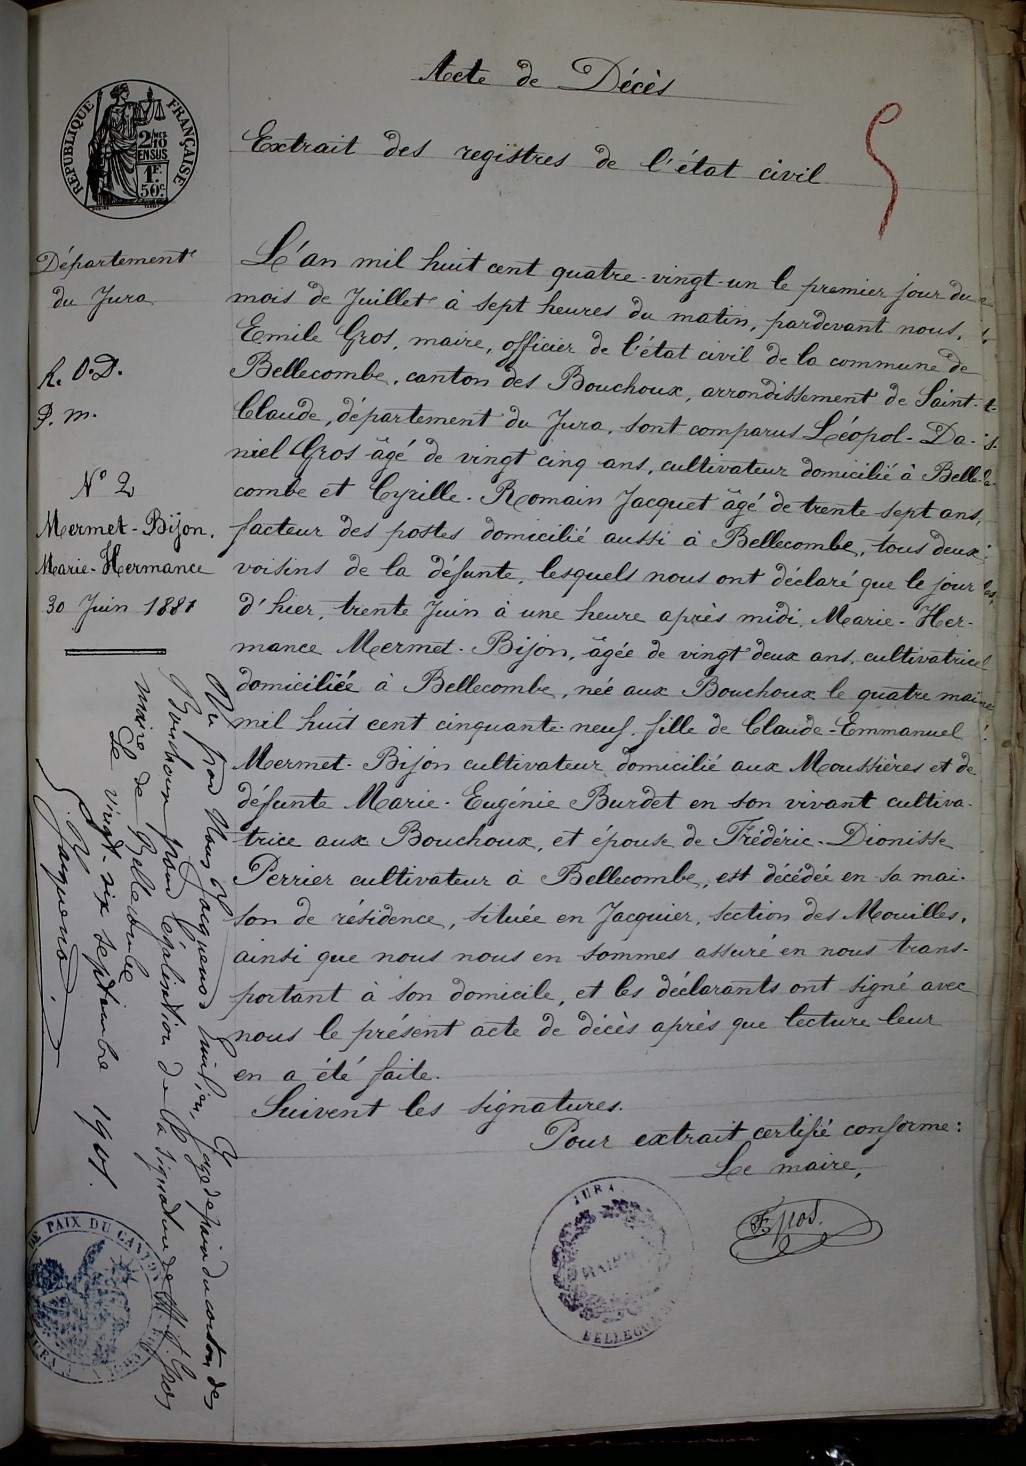 Acte de Décès
Extrait des registres de l'état civil
RÉPUBLIQUE FRANÇAISE
2/10
EN SUS
1F.
50c
Département
du Jura
R. O. D.
P. m.
N° 2
Mermet-Bijon.
Marie-Hermance
30 Juin 1881
L'an mil huit cent quatre-vingt-un le premier jour du
mois de Juillet à sept heures du matin, pardevant nous,
Emile Gros, maire, officier de l'état civil de la commune de
Bellecombe, canton des Bouchoux, arrondissement de Saint-
Claude, département du Jura, sont comparus Léopol-Da-
niel Gros âgé de vingt cinq ans, cultivateur domicilié à Belle-
combe et Cyrille-Romain Jacquet âgé de trente sept ans,
facteur des postes domicilié aussi à Bellecombe, tous deux
voisins de la défunte, lesquels nous ont déclaré que le jour
d'hier, trente Juin à une heure après midi, Marie-Her-
mance Mermet-Bijon, âgée de vingt deux ans, cultivatrice
domiciliée à Bellecombe, née aux Bouchoux le quatre mai
mil huit cent cinquante-neuf, fille de Claude-Emmanuel
Mermet-Bijon cultivateur domicilié aux Moussières et de
défunte Marie-Eugénie Burdet en son vivant cultiva-
trice aux Bouchoux, et épouse de Frédéric-Dionisse
Perrier cultivateur à Bellecombe, est décédée en sa mai-
son de résidence, située en Jacquier, section des Mouilles,
ainsi que nous nous en sommes assuré en nous trans-
portant à son domicile, et les déclarants ont signé avec
nous le présent acte de décès après que lecture leur
en a été faite.
Suivent les signatures.
Pour extrait certifié conforme:
Le maire,
E. Gros.
JURA
MAIRIE
BELLECOMBE
Vu par Nous Jacquenod Emilien, Juge de paix du canton des
Bouchoux pour légalisation de la signature de M. E. Gros
maire de Bellecombe
Le vingt-six septembre 1901.
E. Jacquenod.
DE PAIX DU CANTON
JURA